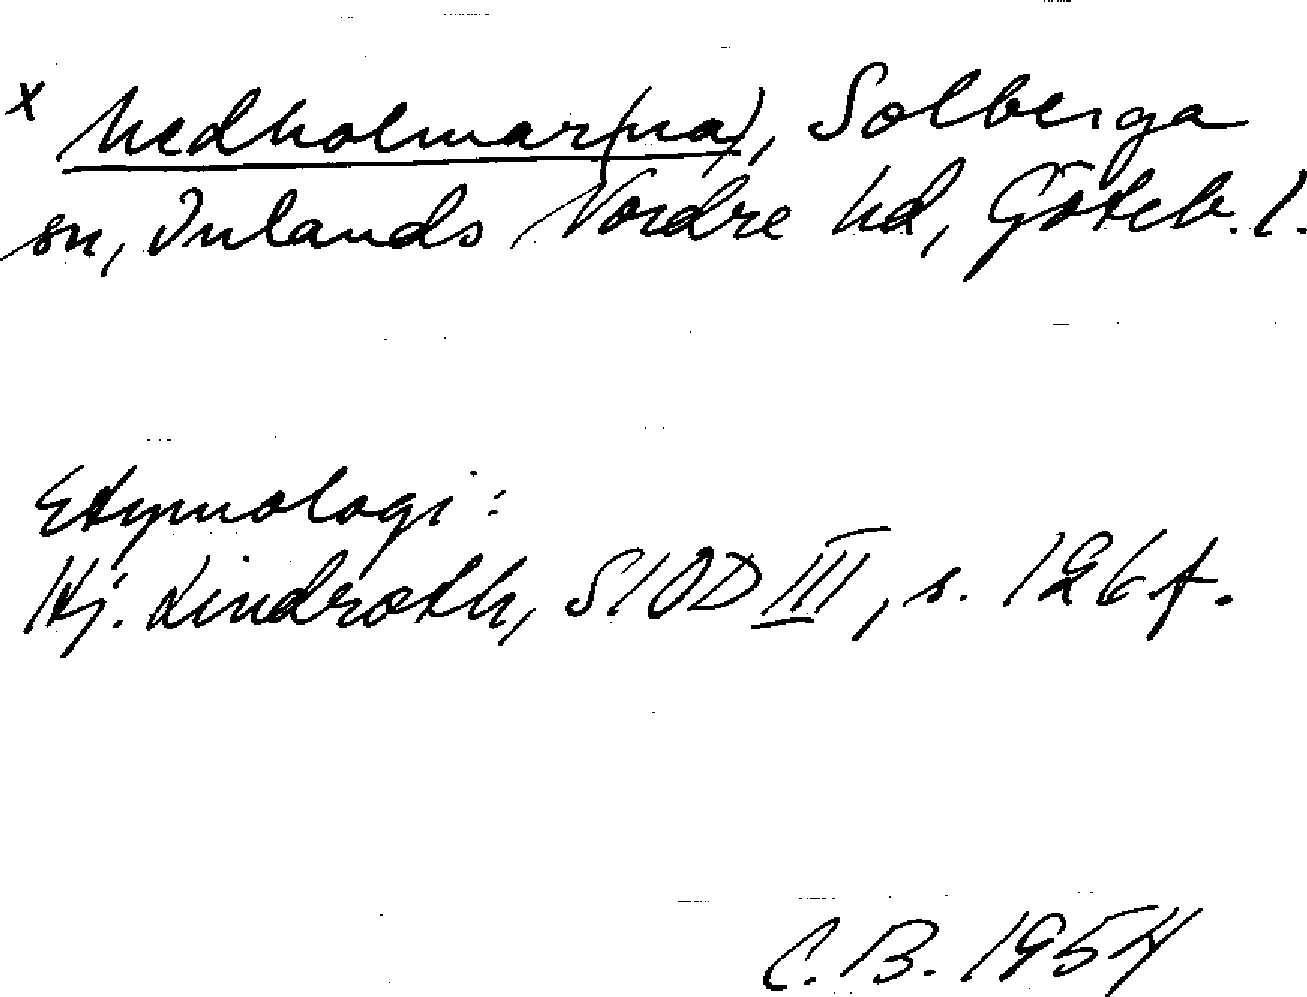 x Nedholmar(na), Solberga
sn, Inlands Nordre hd, Göteb. l.
Etymologi:
Hj. Lindroth, SIOD III, s. 126 f.
C. B. 1954